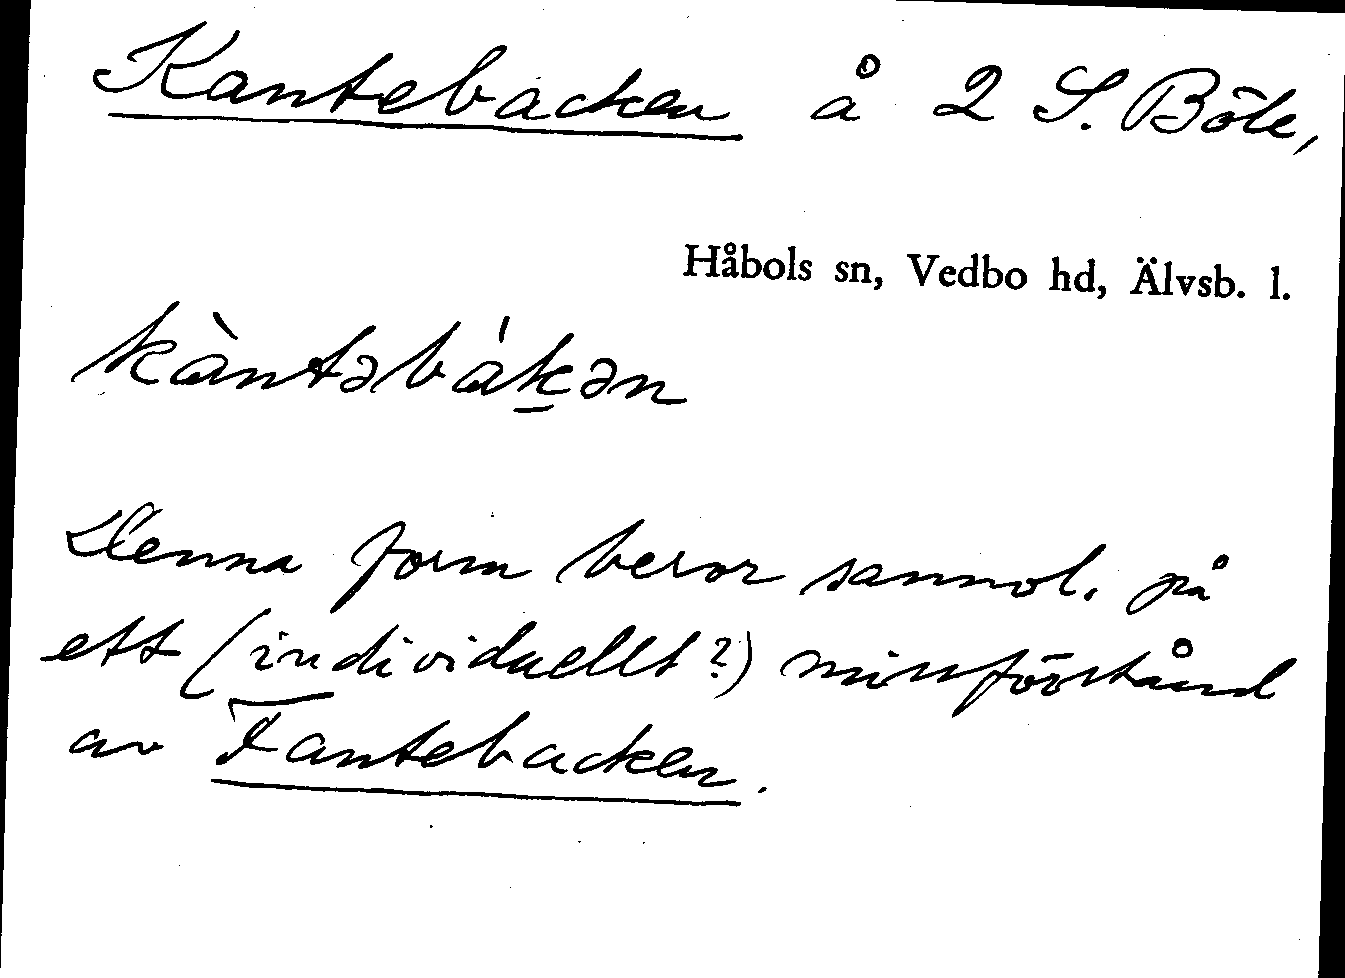 Kantebacken å 2 S. Böle,
Håbols sn, Vedbo hd, Älvsb. l.
kàntəbák̲ən
Denna form beror sannol. på
ett (individuellt?) missförstånd
av Fantebacken.